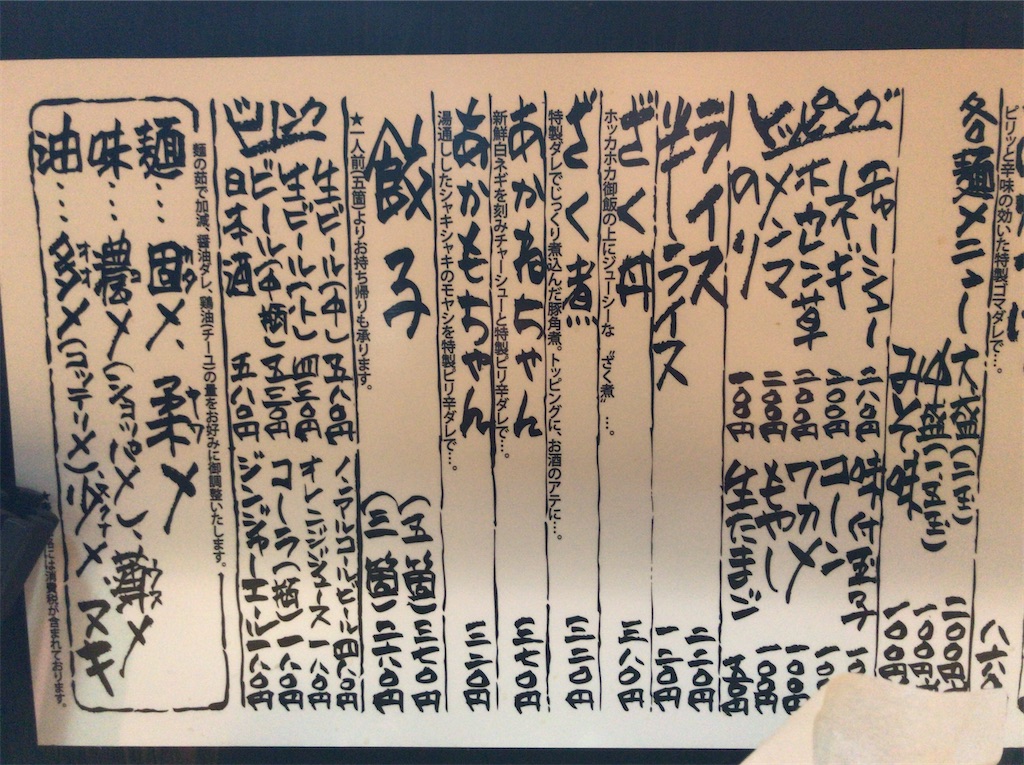 ピリッと辛味の効いた特製ゴマダレで…。
各麺メニュー 大盛(二玉) 二〇〇円
中盛(一・五玉) 一〇〇円
みそ味 一〇〇円
トッピング
チャーシュー 二八〇円
ネギ 二〇〇円
ホウレン草 二〇〇円
メンマ 二〇〇円
のり 一〇〇円
味付玉子
コーン
ワカメ 一〇〇円
もやし 一〇〇円
生たまご 五〇円
ライス 二二〇円
半ライス 一二〇円
ざく丼 三八〇円
ホッカホカ御飯の上にジューシーな〝ざく煮〟…。
ざく煮 三二〇円
特製ダレでじっくり煮込んだ豚角煮。トッピングに、お酒のアテに…。
あかねちゃん 三七〇円
新鮮白ネギを刻みチャーシューと特製ピリ辛ダレで…。
あかもちゃん 三二〇円
湯通ししたシャキシャキのモヤシを特製ピリ辛ダレで…。
餃子
(五箇) 三七〇円
(三箇) 二六〇円
★一人前(五箇)よりお持ち帰りも承ります。
ドリンク
生ビール(中) 五八〇円
生ビール(小) 四三〇円
ビール(中瓶) 五三〇円
日本酒 五八〇円
ノンアルコールビール 四〇〇円
オレンジジュース 一八〇円
コーラ(瓶) 一八〇円
ジンジャーエール 一八〇円
麺の茹で加減、醤油ダレ、鶏油(チーユ)の量をお好みに御調整いたします。
麺…固メ、柔メ
味…濃メ(ショッパメ)、薄メ
油…多メ(コッテリメ)少メ ヌキ
には消費税が含まれております。